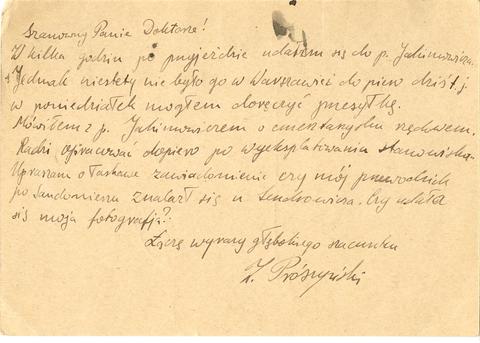 Szanowny Panie Doktorze!
W kilka godzin po przyjeździe udałem się do p. Jakimowicza.
Jednak niestety nie było go w Warszawie i dopiero dziś t.j.
w poniedziałek mogłem doręczyć przesyłkę.
Mówiłem z p. Jakimowiczem o cmentarzysku rzędowem.
Radzi opracować dopiero po wyeksploatowaniu stanowiska.
Upraszam o łaskawe zawiadomienie czy mój przewodnik
po Sandomierzu znalazł się u . Czy udała
się moja fotografja?
Łączę wyrazy głębokiego szacunku
Z. Prószyński